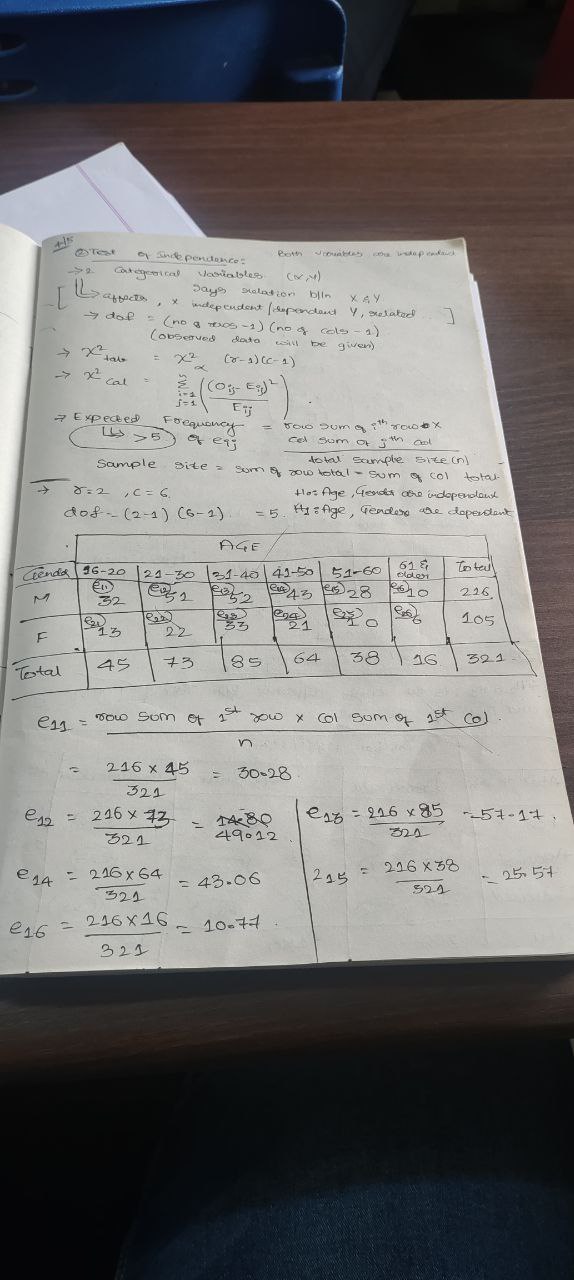 4/5
② Test of Independence: Both variables are independent
→ 2 categorical variables (X, Y)
[ ↳ says relation b/n X & Y
affects, X independent/dependent Y, related.. ]
→ dof = (no of rows - 1) (no of cols - 1)
(observed data will be given)
→ χ²tab = χ²α (r-1)(c-1)
→ χ²cal = Σ i=1 j=1 n ((Oij - Eij)² / Eij)
→ Expected Frequency of eij = row sum of ith row × col sum of jth col / total sample size (n)
↳ >5
Sample size = sum of row total = sum of col total.
→ r=2, c=6. H0: Age, Gender are independent
dof = (2-1) (6-1) = 5. H1: Age, Genders are dependent
AGE
Gender 16-20 21-30 31-40 41-50 51-60 61 & older Total
M e11 32 e12 51 e13 52 e14 43 e15 28 e16 10 216
F e21 13 e22 22 e23 33 e24 21 e25 10 e26 6 105
Total 45 73 85 64 38 16 321
e11 = row sum of 1st row × col sum of 1st col / n
= 216 × 45 / 321 = 30.28
e12 = 216 × 73 / 321 = 49.12
e13 = 216 × 85 / 321 = 57.17
e14 = 216 × 64 / 321 = 43.06
215 = 216 × 38 / 321 = 25.57
e16 = 216 × 16 / 321 = 10.77